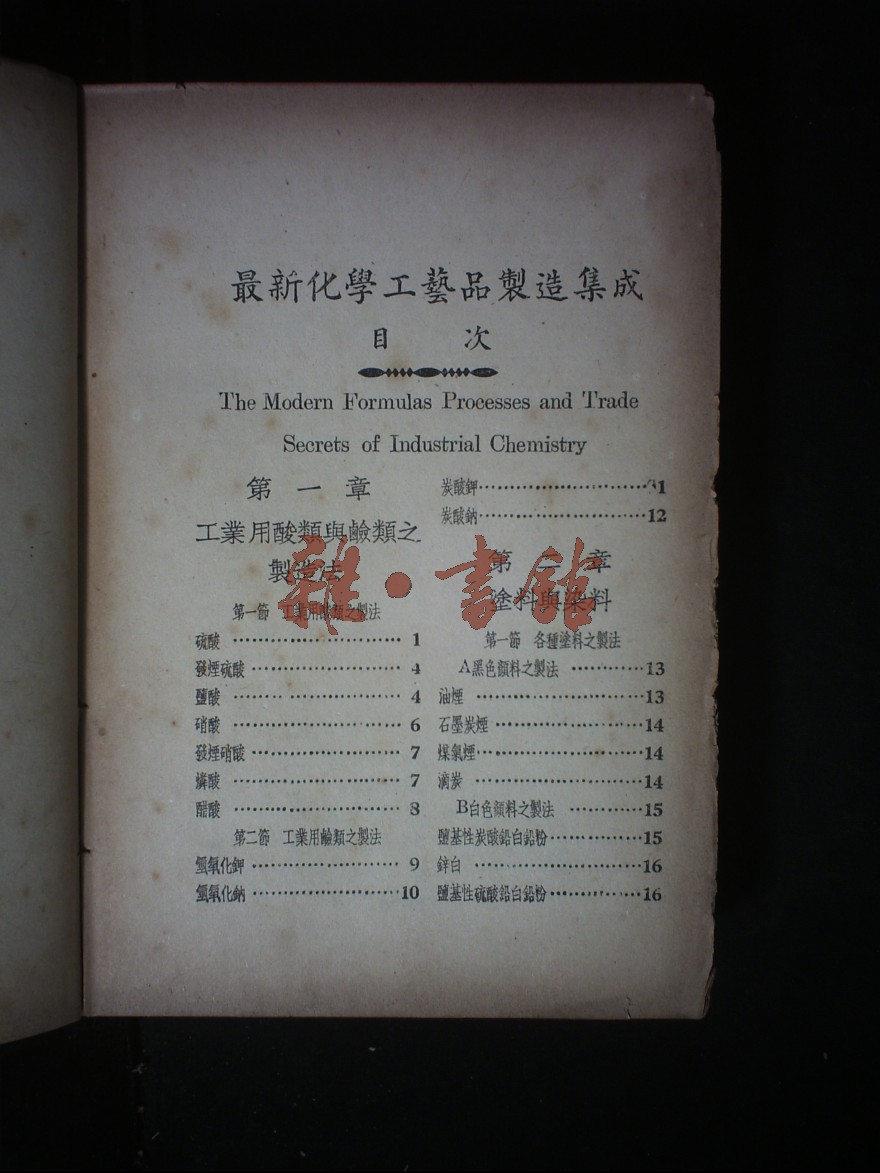 最新化學工藝品製造集成
目 次
The Modern Formulas Processes and Trade
Secrets of Industrial Chemistry
第 一 章
工業用酸類與鹼類之
製造法
第一節 工業用酸類之製法
硫酸 1
發煙硫酸 4
鹽酸 4
硝酸 6
發煙硝酸 7
燐酸 7
醋酸 8
第二節 工業用鹼類之製法
氫氧化鉀 9
氫氧化鈉 10
炭酸鉀 11
炭酸鈉 12
第 二 章
塗料與染料
第一節 各種塗料之製法
A黑色顏料之製法 13
油煙 13
石墨炭煙 14
煤氣煙 14
滴炭 14
B白色顏料之製法 15
鹽基性炭酸鉛白鉛粉 15
鋅白 16
鹽基性硫酸鉛白鉛粉 16
雜·書館